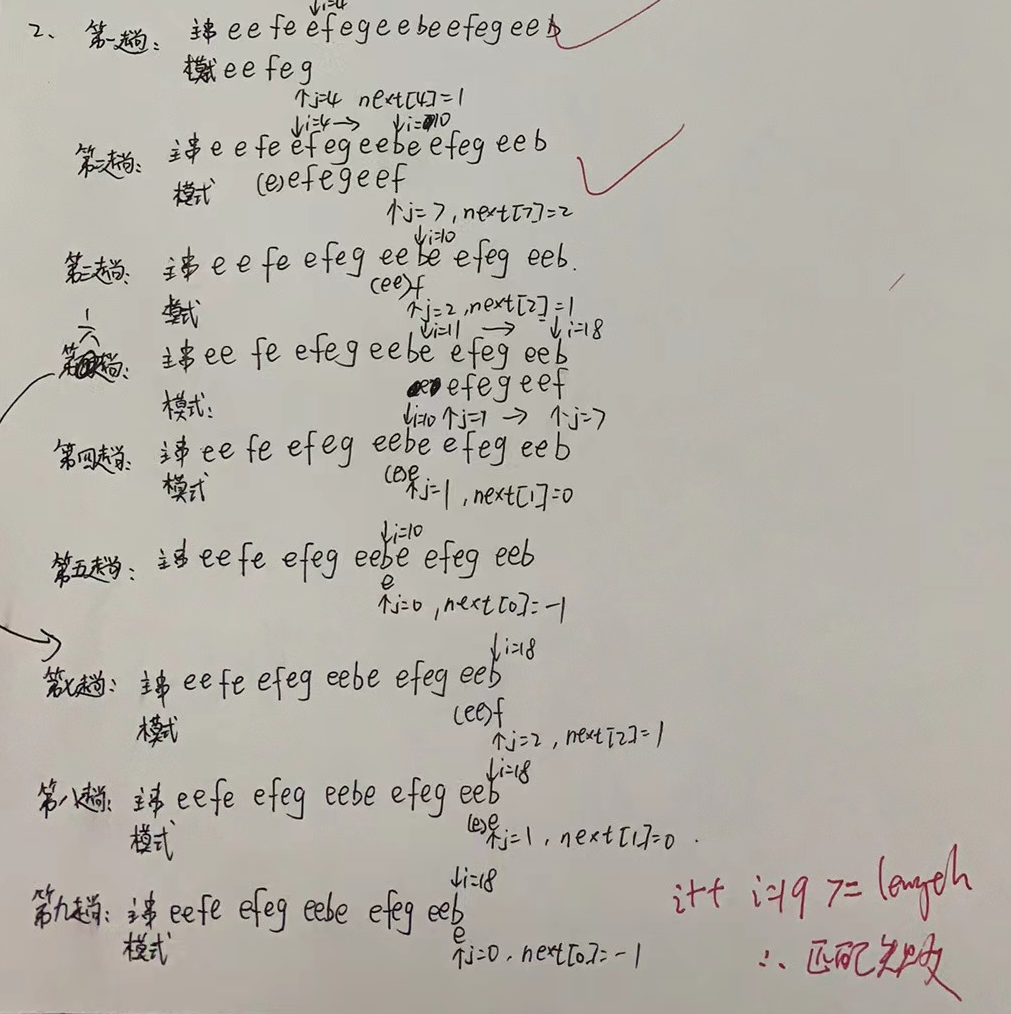 ↓i=4
2、第一趟: 主串 eefe efegeebeefegeeb
模式 eefeg
↑j=4 next[4]=1
↓i=4→ ↓i=10
第二趟: 主串 eefe efegeebe efeg eeb
模式 (e)efegeef
↑j=7, next[7]=2
↓i=10
第三趟: 主串 eefe efeg eebe efeg eeb.
(ee)f
模式 ↑j=2, next[2]=1
↓i=11 → ↓i=18
第六趟: 主串 eefe efeg eebe efeg eeb
efeg eef
模式: ↓i=10 ↑j=1 → ↑j=7
第四趟: 主串 eefe efeg eebe efeg eeb
模式 (e)e
↑j=1, next[1]=0
↓i=10
第五趟: 主串 eefe efeg eebe efeg eeb
e
↑j=0, next[0]=-1
↓i=18
第七趟: 主串 eefe efeg eebe efeg eeb
模式 (ee)f
↑j=2, next[2]=1
↓i=18
第八趟: 主串 eefe efeg eebe efeg eeb
模式 (e)e
↑j=1, next[1]=0.
↓i=18
第九趟: 主串 eefe efeg eebe efeg eeb
模式 e
↑j=0, next[0]=-1
i++ i=19 >= length
∴ 匹配失败